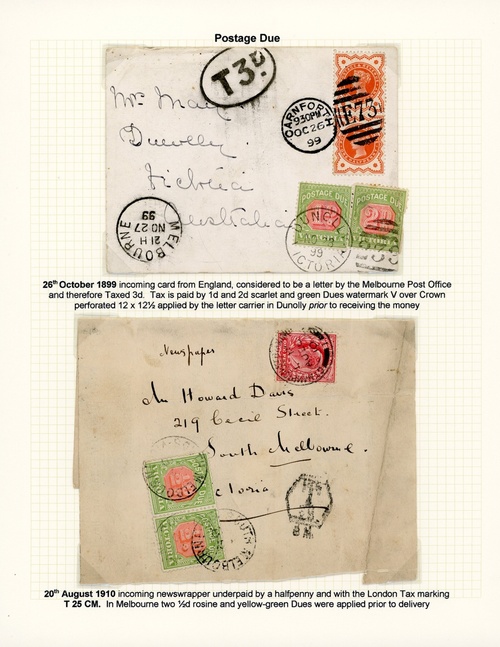 Postage Due
T3D.
Mr. 
Dunolly
Victoria
Australia
CARNFORTH
9.30PM
OC 26
99
E73
POSTAGE DUE
POSTAGE DUE
DUNOLLY
99
VICTORIA
MELBOURNE
21 H
NO 27
99
26th October 1899 incoming card from England, considered to be a letter by the Melbourne Post Office
and therefore Taxed 3d. Tax is paid by 1d and 2d scarlet and green Dues watermark V over Crown
perforated 12 x 12½ applied by the letter carrier in Dunolly prior to receiving the money
Newspaper
Mr Howard Davis
219 Cecil Street.
South Melbourne.
Victoria
T
MELBOURNE
20th August 1910 incoming newswrapper underpaid by a halfpenny and with the London Tax marking
T 25 CM. In Melbourne two ½d rosine and yellow-green Dues were applied prior to delivery